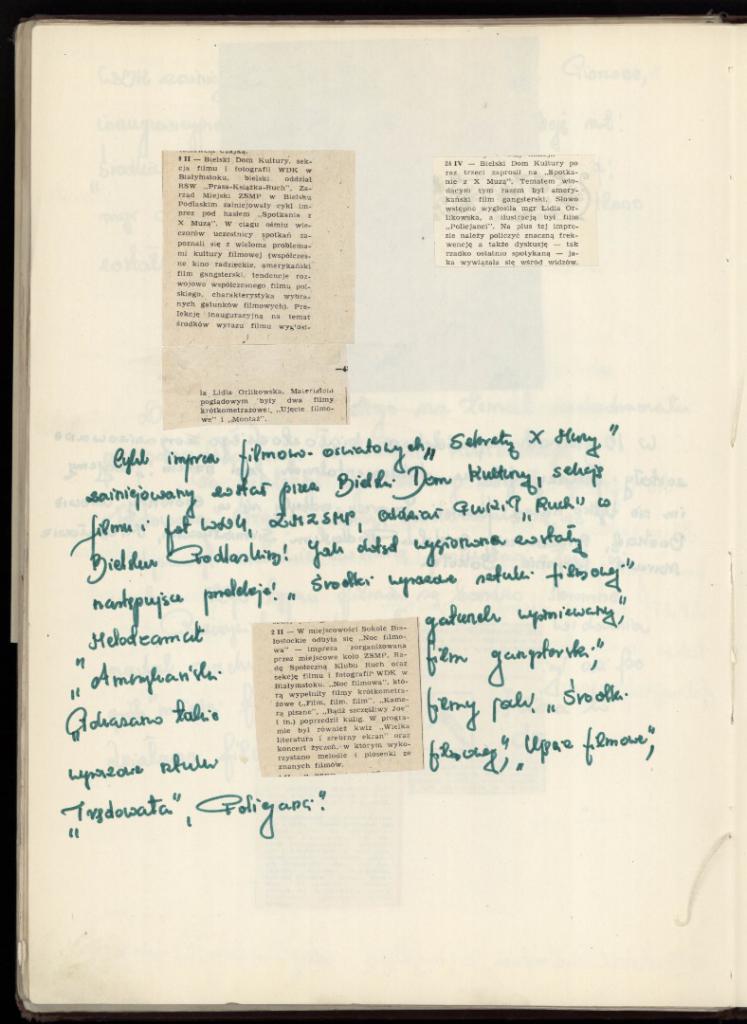 9 II — Bielski Dom Kultury, sek-
cja filmu i fotografii WDK w
Białymstoku, bielski oddział
RSW „Prasa-Książka-Ruch”, Za-
rząd Miejski ZSMP w Bielsku
Podlaskim zainicjowały cykl im-
prez pod hasłem „Spotkania z
X Muzą”. W ciągu ośmiu wie-
czorów uczestnicy spotkań zapo-
znali się z wieloma problema-
mi kultury filmowej (współczes-
ne kino radzieckie, amerykański
film gangsterski, tendencje roz-
wojowe współczesnego filmu pol-
skiego, charakterystyka wybra-
nych gatunków filmowych). Pre-
lekcję inauguracyjną na temat
środków wyrazu filmu wygłosi-
ła Lidia Orlikowska. Materiałem
poglądowym były dwa filmy
krótkometrażowe: „Ujęcie filmo-
we” i „Montaż”.
24 IV — Bielski Dom Kultury po
raz trzeci zaprosił na „Spotka-
nie z X Muzą”. Tematem wio-
dącym tym razem był amery-
kański film gangsterski. Słowo
wstępne wygłosiła mgr Lidia Or-
likowska, a ilustracją był film
„Policjanci”. Na plus tej impre-
zie należy policzyć znaczną frek-
wencję a także dyskusję — tak
rzadko ostatnio spotykaną — ja-
ka wywiązała się wśród widzów.
Cykl imprez filmowo-oswiatowych „Sekrety X Muzy”
zainicjowany został przez Bielski Dom Kultury, sekcje
filmu i fot WDK, ZMZSMP, oddział „Ruch” w
Bielsku Podlaskim! Jak dotąd wygłoszone zostały
następujące prelekcje! „Środki wyrazowe sztuki filmowej”
Melodramat gatunek wyśmiewany,”
„Amerykański film gangsterski,”
filmy „Środki
wyrazowe sztuki filmowej”, „Ujęcie filmowe”,
„Trędowata”, „Policjanci.”
2 II — W miejscowości Sokole Bia-
łostockie odbyła się „Noc filmo-
wa” — impreza zorganizowana
przez miejscowe koło ZSMP, Ra-
dę Społeczną Klubu Ruch oraz
sekcję filmu i fotografii WDK w
Białymstoku. „Noc filmową”, któ-
rą wypełniły filmy krótkometra-
żowe („Film, film, film”, „Kame-
rą pisane”, „Bądź szczęśliwy Joe”
i in.) poprzedził kulig. W progra-
mie był również kwiz „Wielka
literatura i srebrny ekran” oraz
koncert życzeń, w którym wyko-
rzystano melodie i piosenki ze
znanych filmów.